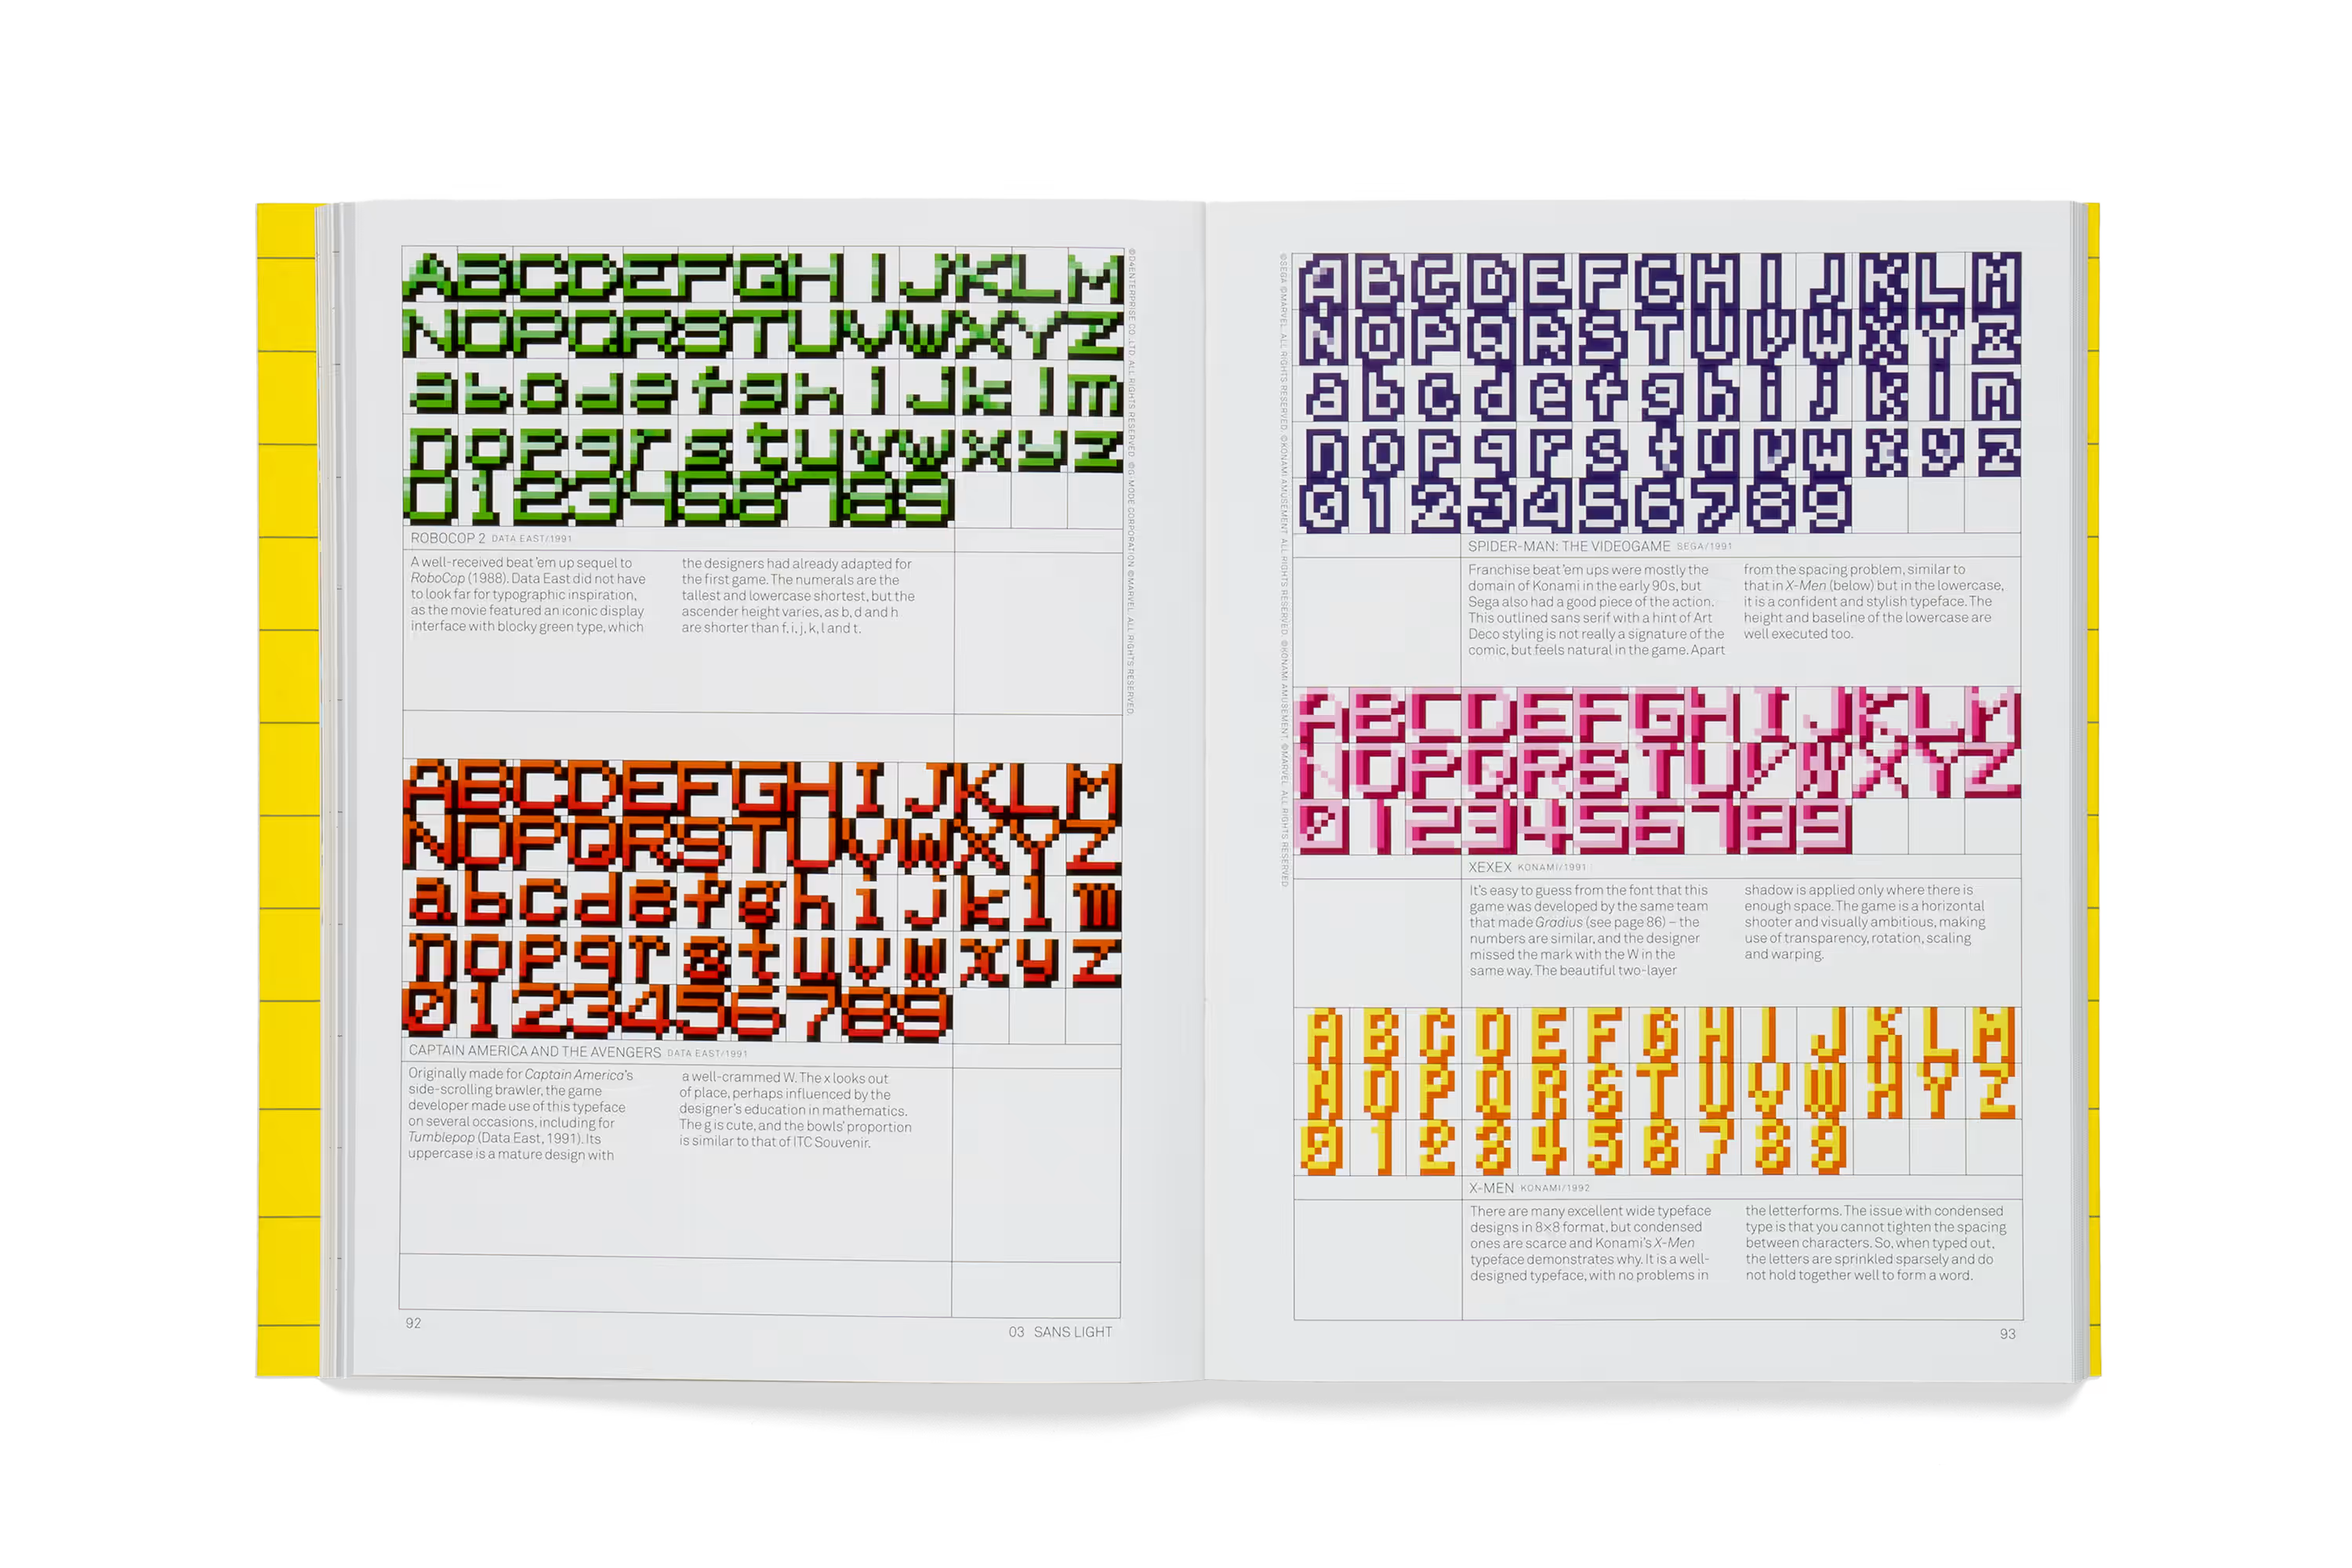 ABCDEFGHIJKLM
NOPQRSTUVWXYZ
abcdefghijklm
nopqrstuvwxyz
0123456789
ROBOCOP 2 DATA EAST/1991
A well-received beat ’em up sequel to
RoboCop (1988). Data East did not have
to look far for typographic inspiration,
as the movie featured an iconic display
interface with blocky green type, which
the designers had already adapted for
the first game. The numerals are the
tallest and lowercase shortest, but the
ascender height varies, as b, d and h
are shorter than f, i, j, k, l and t.
©D4ENTERPRISE CO.,LTD. ALL RIGHTS RESERVED. ©G-MODE CORPORATION ©MARVEL. ALL RIGHTS RESERVED.
ABCDEFGHIJKLM
NOPQRSTUVWXYZ
abcdefghijklm
nopqrstuvwxyz
0123456789
CAPTAIN AMERICA AND THE AVENGERS DATA EAST/1991
Originally made for Captain America’s
side-scrolling brawler, the game
developer made use of this typeface
on several occasions, including for
Tumblepop (Data East, 1991). Its
uppercase is a mature design with
a well-crammed W. The x looks out
of place, perhaps influenced by the
designer’s education in mathematics.
The g is cute, and the bowls’ proportion
is similar to that of ITC Souvenir.
92
03 SANS LIGHT
©SEGA ©MARVEL. ALL RIGHTS RESERVED. ©KONAMI AMUSEMENT. ALL RIGHTS RESERVED. ©KONAMI AMUSEMENT. ©MARVEL. ALL RIGHTS RESERVED.
ABCDEFGHIJKLM
NOPQRSTUVWXYZ
abcdefghijklm
nopqrstuvwxyz
0123456789
SPIDER-MAN: THE VIDEOGAME SEGA/1991
Franchise beat ’em ups were mostly the
domain of Konami in the early 90s, but
Sega also had a good piece of the action.
This outlined sans serif with a hint of Art
Deco styling is not really a signature of the
comic, but feels natural in the game. Apart
from the spacing problem, similar to
that in X-Men (below) but in the lowercase,
it is a confident and stylish typeface. The
height and baseline of the lowercase are
well executed too.
ABCDEFGHIJKLM
NOPQRSTUVWXYZ
0123456789
XEXEX KONAMI/1991
It’s easy to guess from the font that this
game was developed by the same team
that made Gradius (see page 86) – the
numbers are similar, and the designer
missed the mark with the W in the
same way. The beautiful two-layer
shadow is applied only where there is
enough space. The game is a horizontal
shooter and visually ambitious, making
use of transparency, rotation, scaling
and warping.
ABCDEFGHIJKLM
NOPQRSTUVWXYZ
0123456789
X-MEN KONAMI/1992
There are many excellent wide typeface
designs in 8×8 format, but condensed
ones are scarce and Konami’s X-Men
typeface demonstrates why. It is a well-
designed typeface, with no problems in
the letterforms. The issue with condensed
type is that you cannot tighten the spacing
between characters. So, when typed out,
the letters are sprinkled sparsely and do
not hold together well to form a word.
93